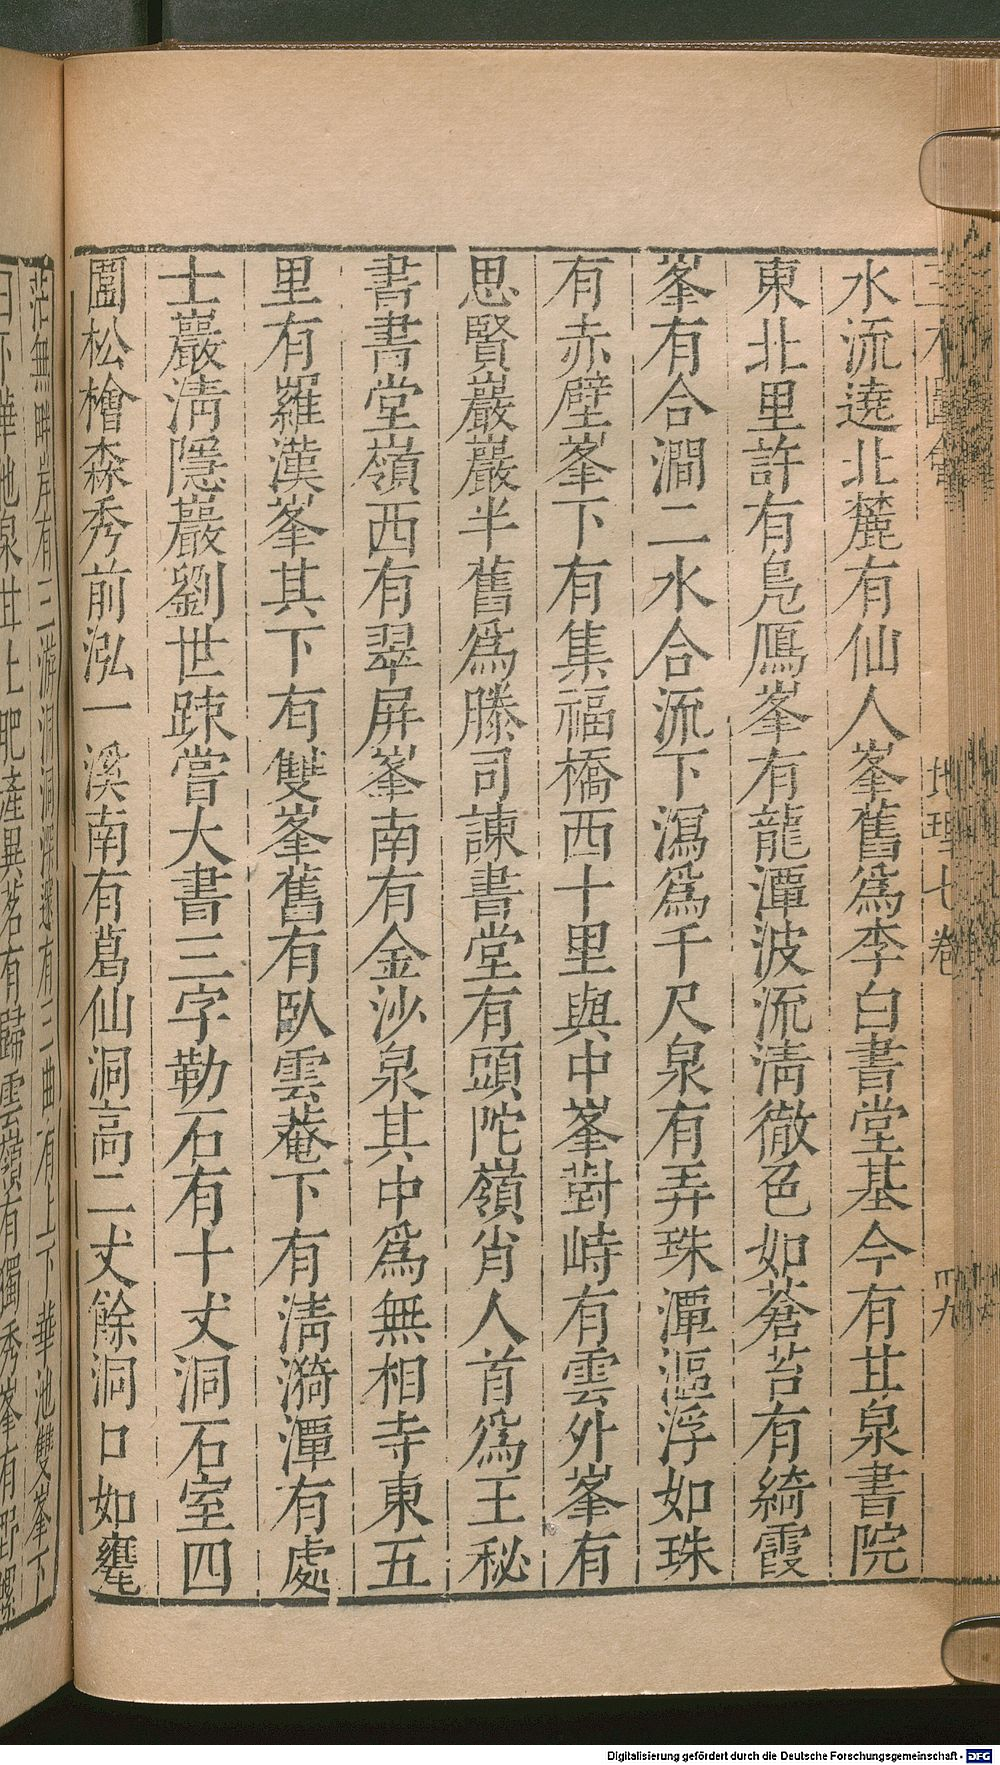 水流遶北麓有仙人峯舊爲李白書堂基今有甘泉書院
東北里許有鳧鴈峯有龍潭波流淸徹色如蒼苔有綺霞
峯有合澗二水合流下瀉爲千尺泉有弄珠潭漚浮如珠
有赤壁峯下有集福橋西十里與中峯對峙有雲外峯有
思賢巖巖半舊爲滕司諫書堂有頭陀嶺肖人首爲王秘
書書堂嶺西有翠屏峯南有金沙泉其中爲無相寺東五
里有羅漢峯其下有雙峯舊有臥雲菴下有淸漪潭有處
士巖淸隱巖劉世踈嘗大書三字勒石有十丈洞石室四
圍松檜森秀前泓一溪南有葛仙洞高二丈餘洞口如甕
茫無畔岸有三游洞洞深邃有三曲有上下華池雙峯下
曰下華池泉甘土肥產異茗有歸雲嶺有獨秀峯有
地理七卷
Digitalisierung gefördert durch die Deutsche Forschungsgemeinschaft - DFG